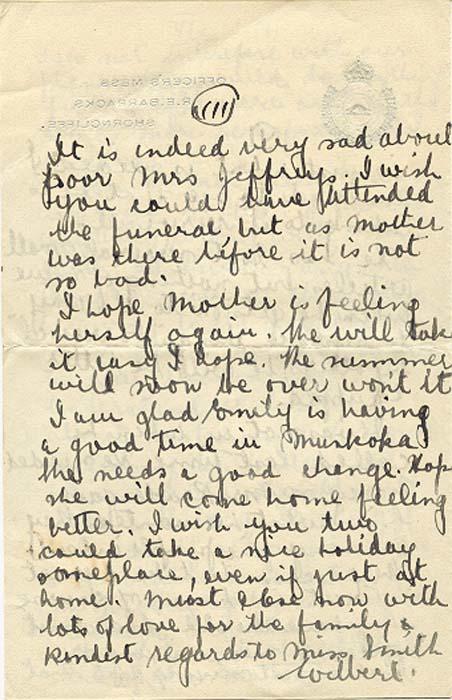 OFFICER'S MESS
R.E. BARRACKS
SHORNCLIFFE.
(III)
It is indeed very sad about
poor Mrs Jeffrys. I wish
you could have attended
the funeral but as Mother
was there before it is not
so bad.
I hope Mother is feeling
herself again. She will take
it easy I hope. The summer
will soon be over won't it
I am glad Emily is having
a good time in Muskoka
She needs a good change. Hope
she will come home feeling
better. I wish you two
could take a nice holiday
someplace, even if just at
home. Must close now with
lots of love for the family &
kindest regards to Miss Smith
Wilbert.